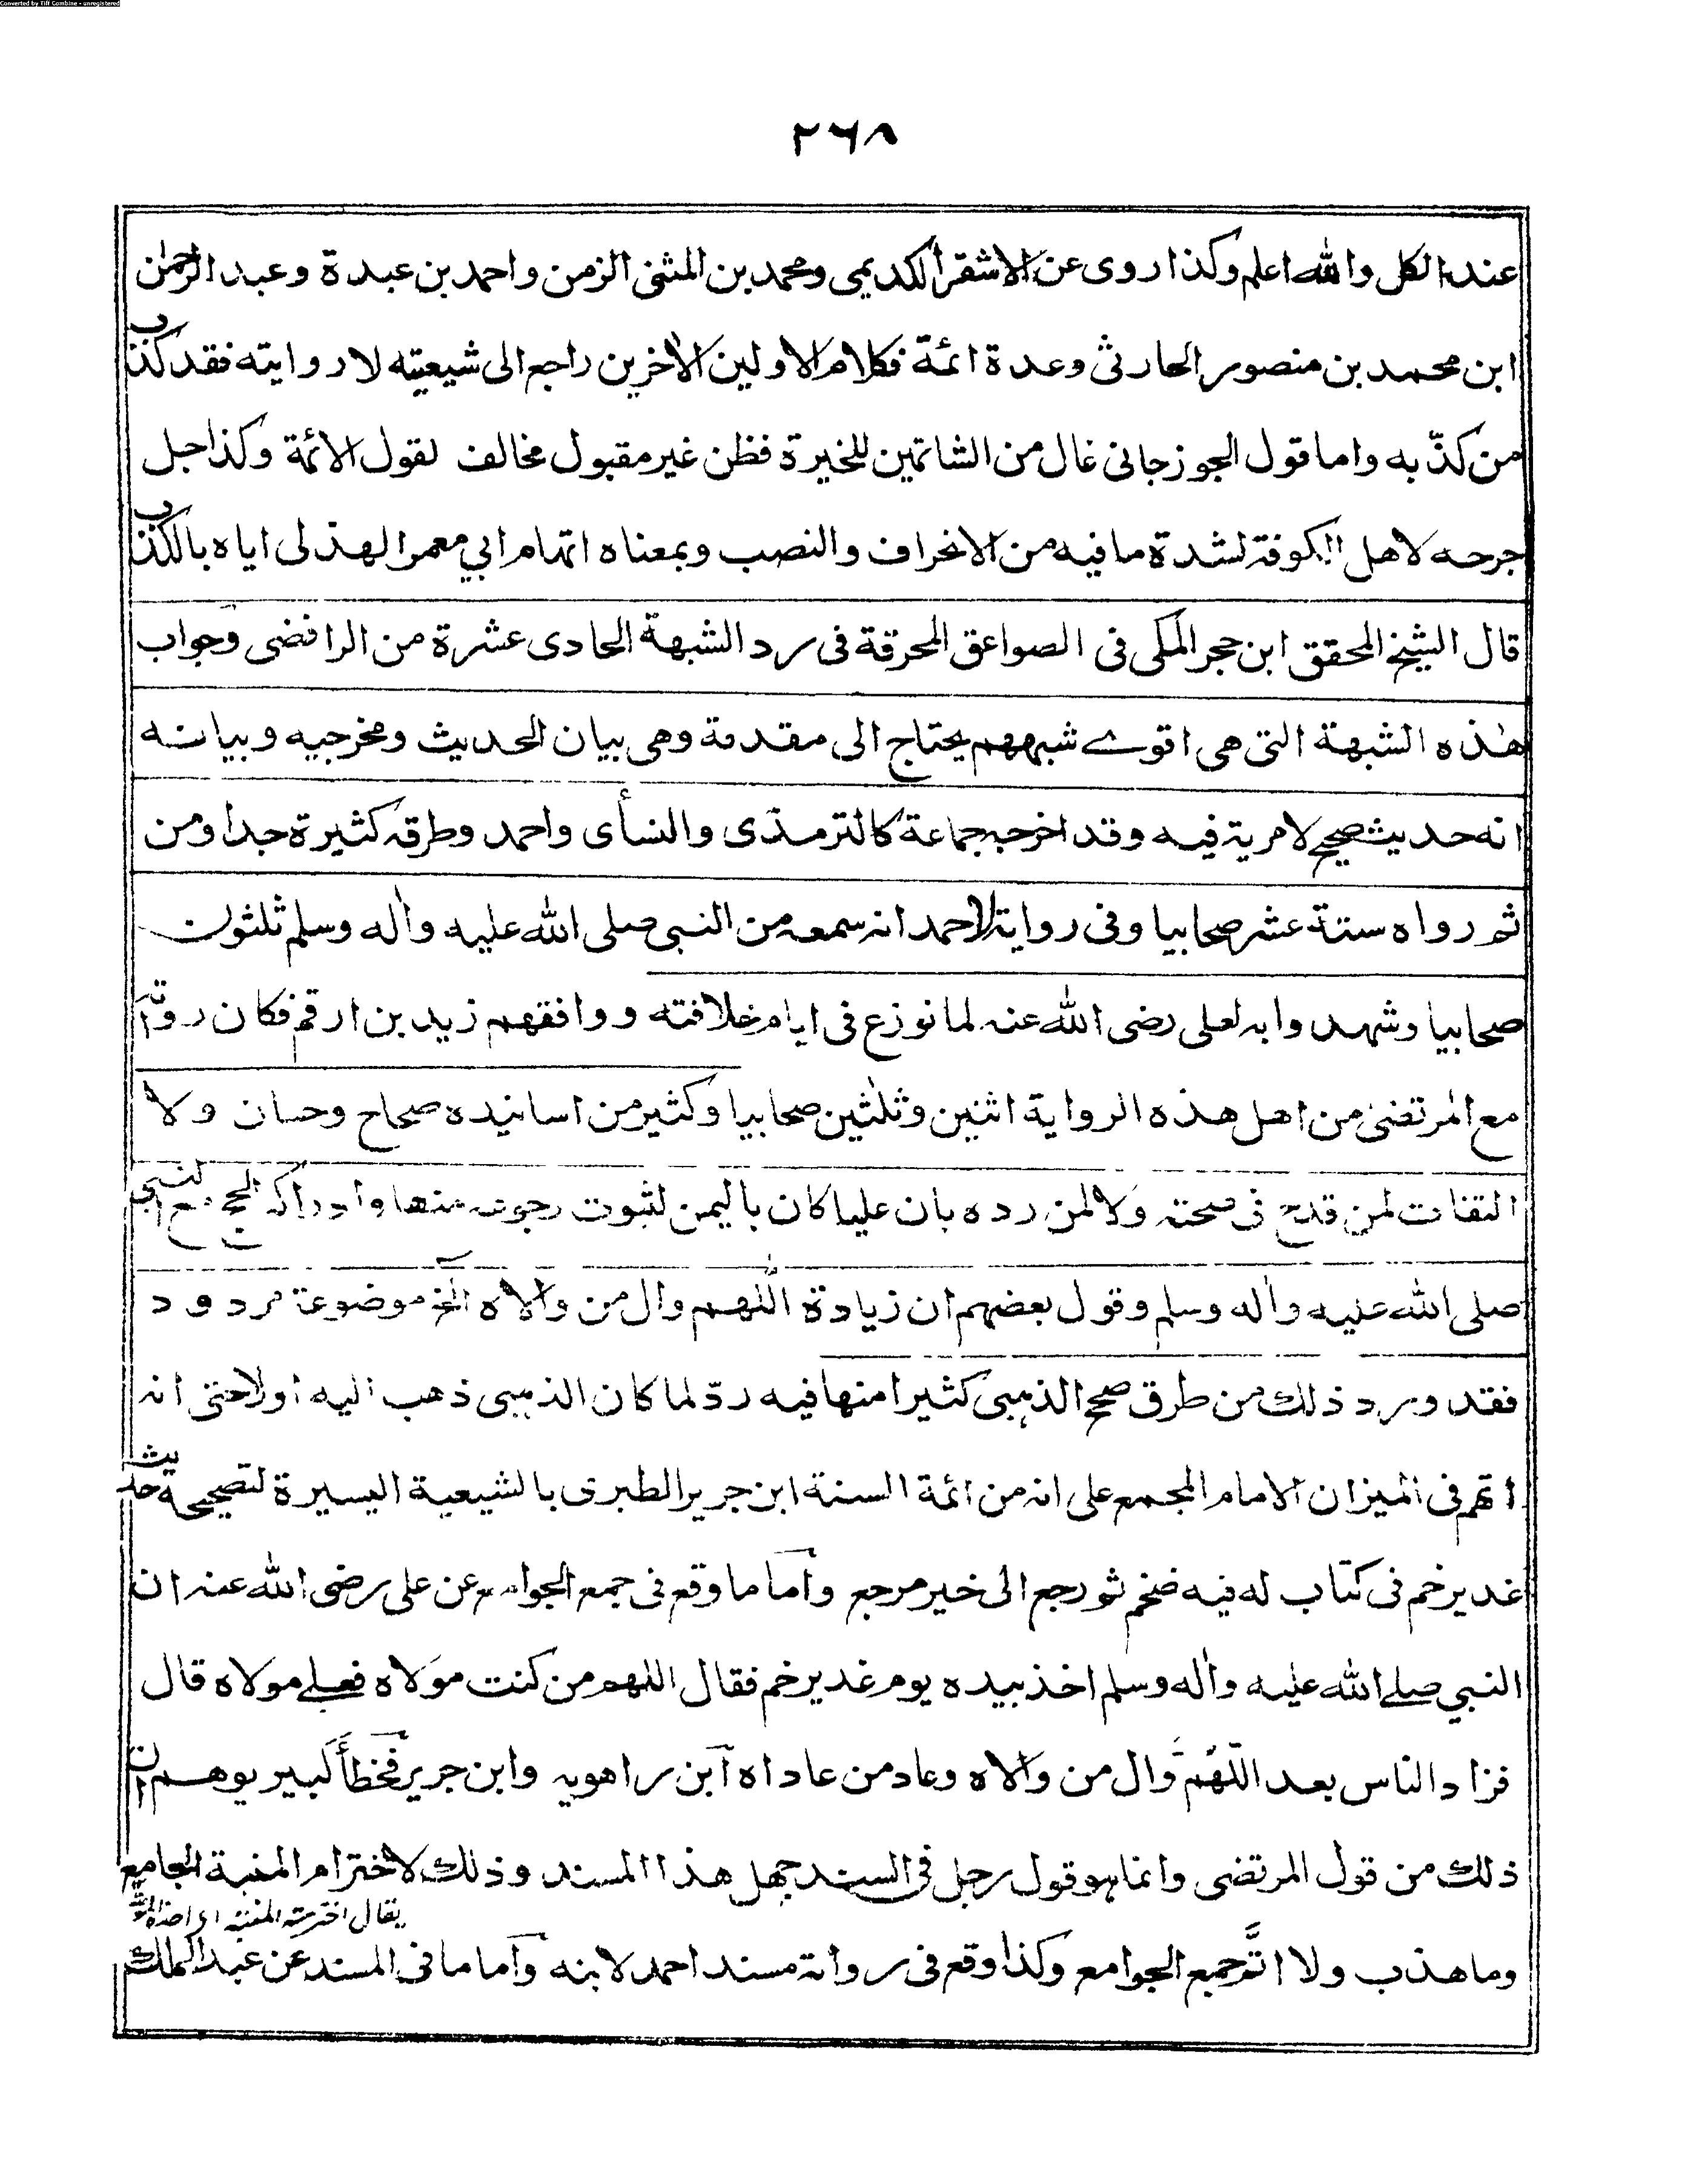 Converted by Tiff Combine - unregistered
٢٦٨
عند الكل والله اعلم وكذا روى عن الاشقر الكديمى ومحمد بن المثنى الزمن واحمد بن عبدة وعبد الرحمٰن
ابن محمد بن منصور الحارثى وعدة ائمة فكلام الاولين الاخرين راجع الى شيعيته لا روايته فقد كذب
من كذّبه واما قول الجوزجانى غال من الشاتمين للخيرة فظن غير مقبول مخالف لقول الائمة وكذا جل
جرحه لاهل الكوفة لشدة ما فيه من الانحراف والنصب وبمعناه اتهام ابي معمر الهذلى اياه بالكذب
قال الشيخ المحقق ابن حجر المكى فى الصواعق المحرقة فى رد الشبهة الحادى عشرة من الرافضى وجواب
هٰذه الشبهة التى هى اقوے شبههم يحتاج الى مقدمة وهى بيان الحديث ومخرجيه وبيانه
انه حديث صحيح لا مرية فيه وقد اخرجه جماعة كالترمذى والنسأى واحمد وطرقه كثيرة جدا ومن
ثم رواه ستة عشر صحابيا وفى رواية لاحمد انه سمعه من النبى صلى الله عليه واٰله وسلم ثلثون
صحابيا وشهدوا به لعلى رضى الله عنه لما نوزع فى ايام خلافته ووافقهم زيد بن ارقم فكان رواته
مع المرتضىٰ من اهل هذه الرواية اثنين وثلٰثين صحابيا وكثير من اسانيده صحاح وحسان ولا
التفات لمن قدح فى صحته ولا لمن رده بان عليا كان باليمن لثبوت رجوعه منها وادراكه الحج مع النبى
صلى الله عليه واٰله وسلم وقول بعضهم ان زيادة اللّٰهم وال من والاه الخ موضوعة مردود
فقد ورد ذلك من طرق صحح الذهبى كثيرا منها فيه ردّ لما كان الذهبى ذهب اليه اولا حتى انه
اتهم فى الميزان الامام المجمع على انه من ائمة السنة ابن جرير الطبرى بالشيعية اليسيرة لتصحيحه حديث
غدير خم فى كتاب له فيه ضخم ثم رجع الى خير مرجع واما ما وقع فى جمع الجوامع عن على رضى الله عنه ان
النبي صلے الله عليه واٰله وسلم اخذ بيده يوم غدير خم فقال اللهم من كنت مولاه فعلے مولاه قال
فزاد الناس بعد اللّٰهُمَّ وال من والاه وعاد من عاداه ابن راهويه وابن جرير فخطأ كبير يوهم ان
ذلك من قول المرتضى وانما هو قول رجل فى السند جهل هذا المسند وذلك لاخترام المنية الجامع
يقال اخترمته المنية اى اخذته
وما هذب ولا اتَّم جمع الجوامع وكذا وقع فى رواية مسند احمد لابنه واما ما فى المسند عن عبد الملك